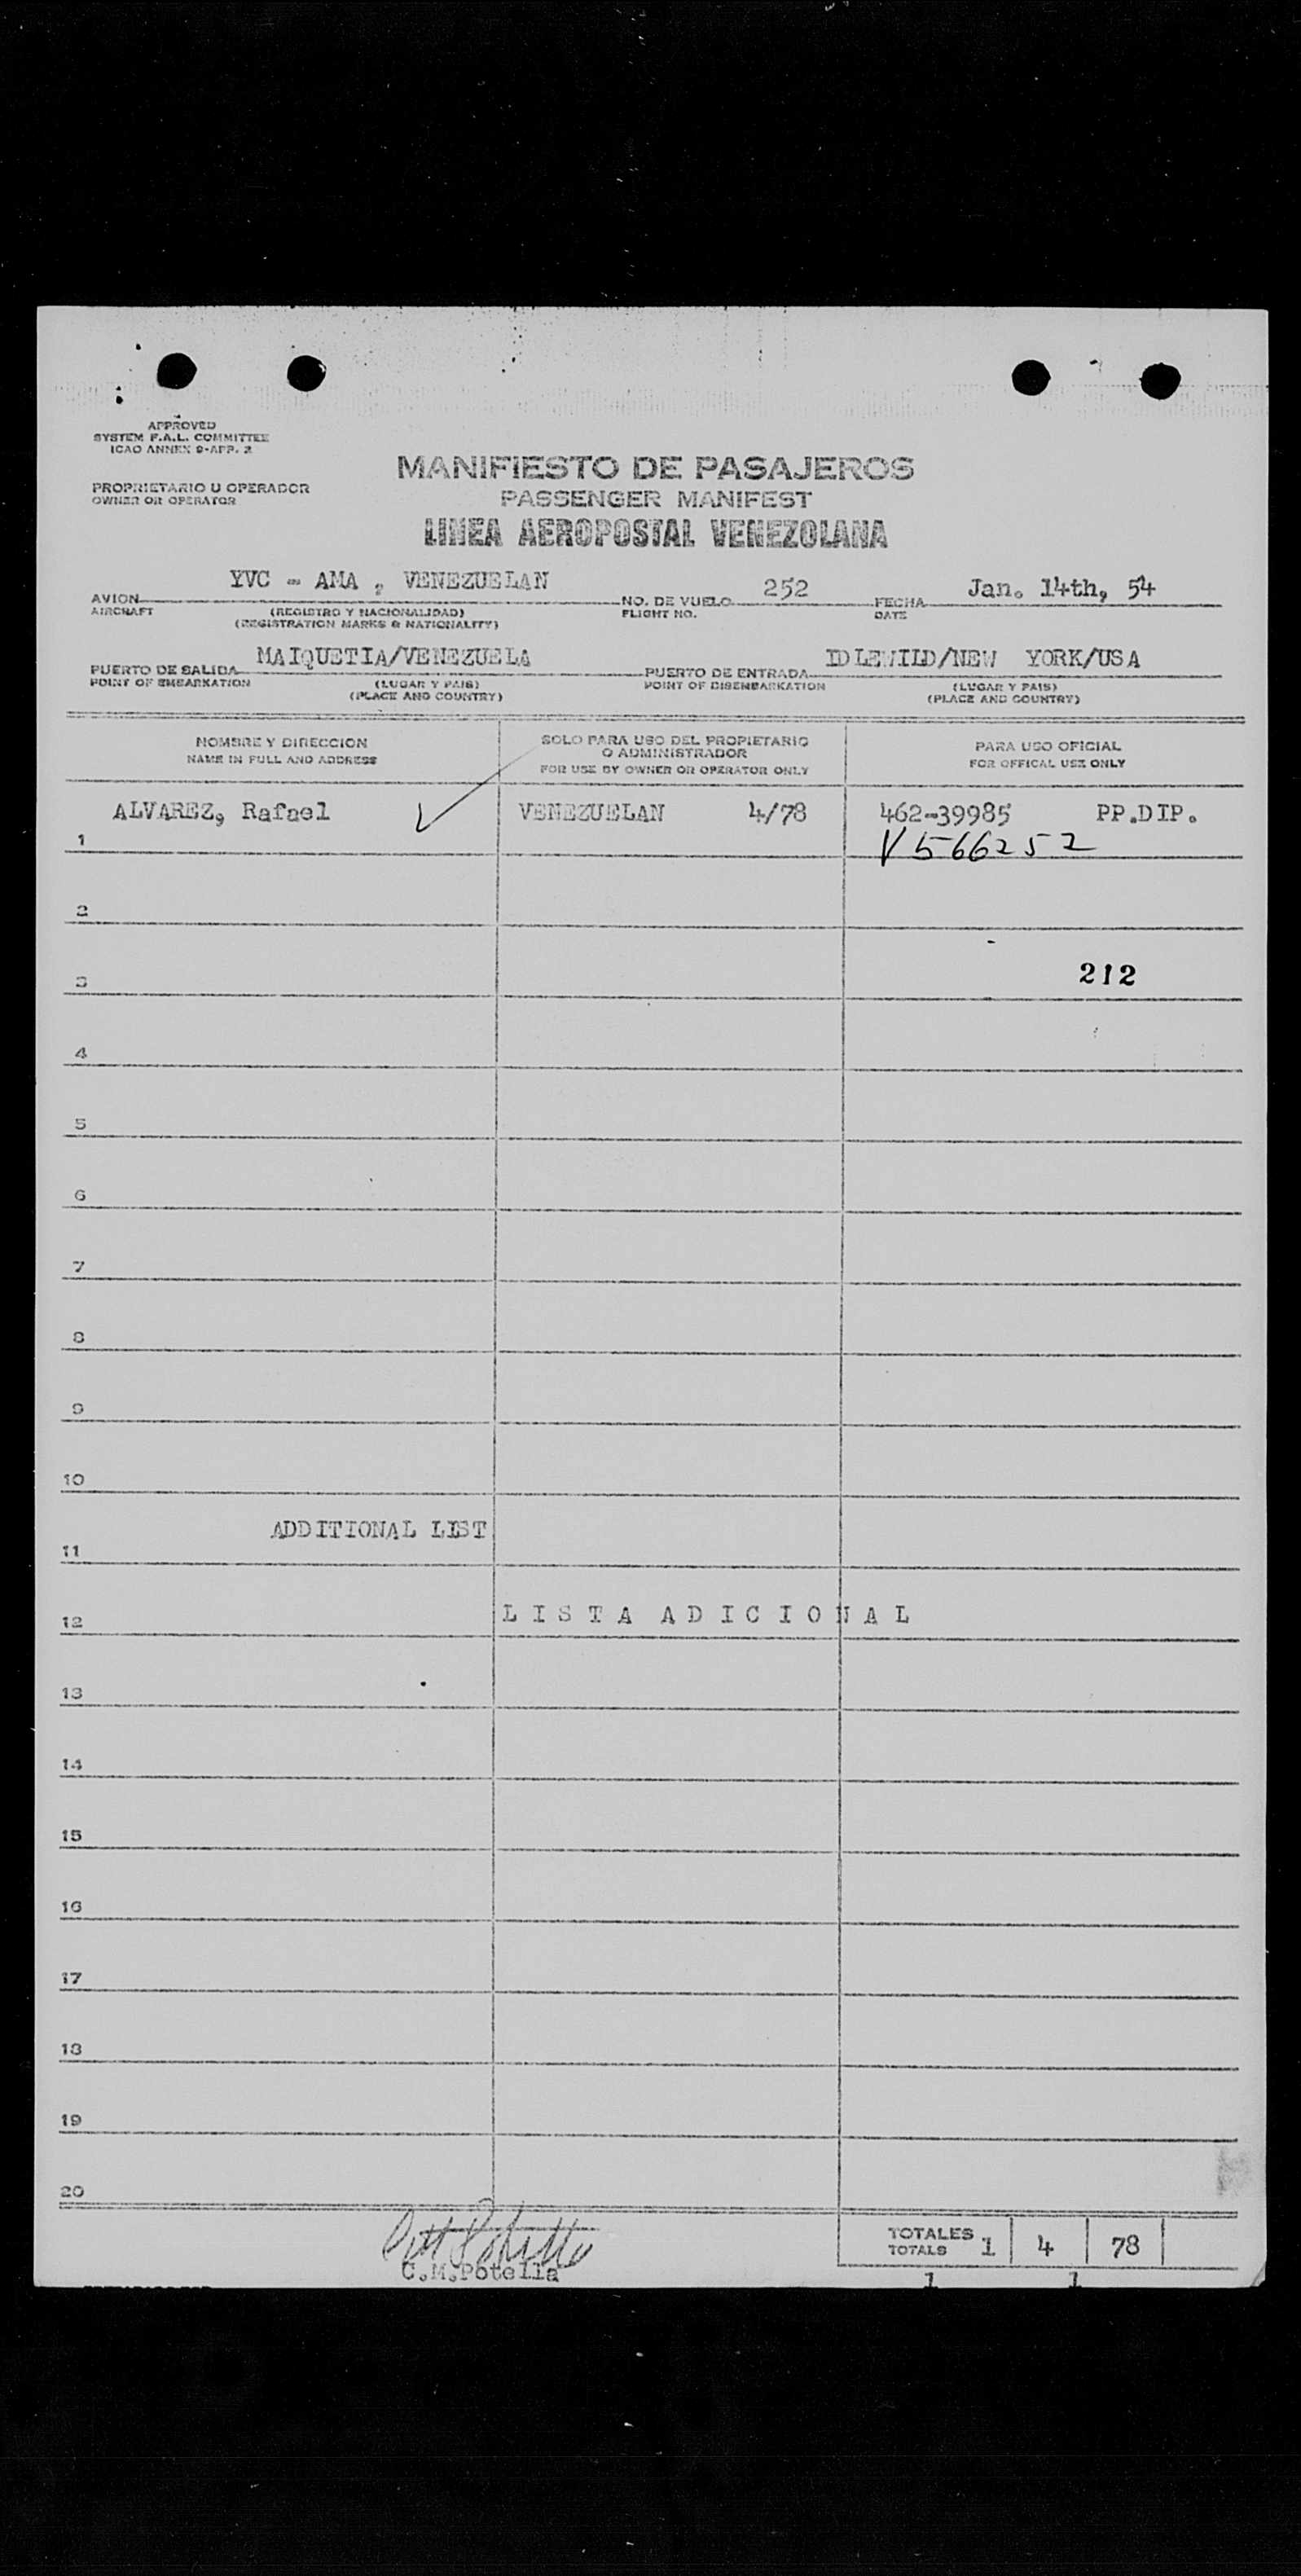 APPROVED
SYSTEM F.A.L. COMMITTEE
ICAO ANNEX 9-APP. 2
MANIFIESTO DE PASAJEROS
PROPRIETARIO U OPERADOR
OWNER OR OPERATOR
PASSENGER MANIFEST
LINEA AEROPOSTAL VENEZOLANA
AVION YVC - AMA , VENEZUELAN NO. DE VUELO 252 FECHA Jan. 14th, 54
AIRCRAFT (REGISTRO Y NACIONALIDAD) FLIGHT NO. DATE
(REGISTRATION MARKS & NATIONALITY)
PUERTO DE SALIDA MAIQUETIA/VENEZUELA PUERTO DE ENTRADA IDLEWILD/NEW YORK/USA
POINT OF EMBARKATION (LUGAR Y PAIS) POINT OF DISEMBARKATION (LUGAR Y PAIS)
(PLACE AND COUNTRY) (PLACE AND COUNTRY)
NOMBRE Y DIRECCION
NAME IN FULL AND ADDRESS
SOLO PARA USO DEL PROPIETARIO
O ADMINISTRADOR
FOR USE BY OWNER OR OPERATOR ONLY
PARA USO OFICIAL
FOR OFFICAL USE ONLY
ALVAREZ, Rafael VENEZUELAN 4/78 462-39985 PP.DIP.
1 V566252
2
3 212
4
5
6
7
8
9
10
11 ADDITIONAL LIST
12 LISTA ADICIONAL
13
14
15
16
17
18
19
20
TOTALES
TOTALS 1 4 78
C.M.Potella
1 1